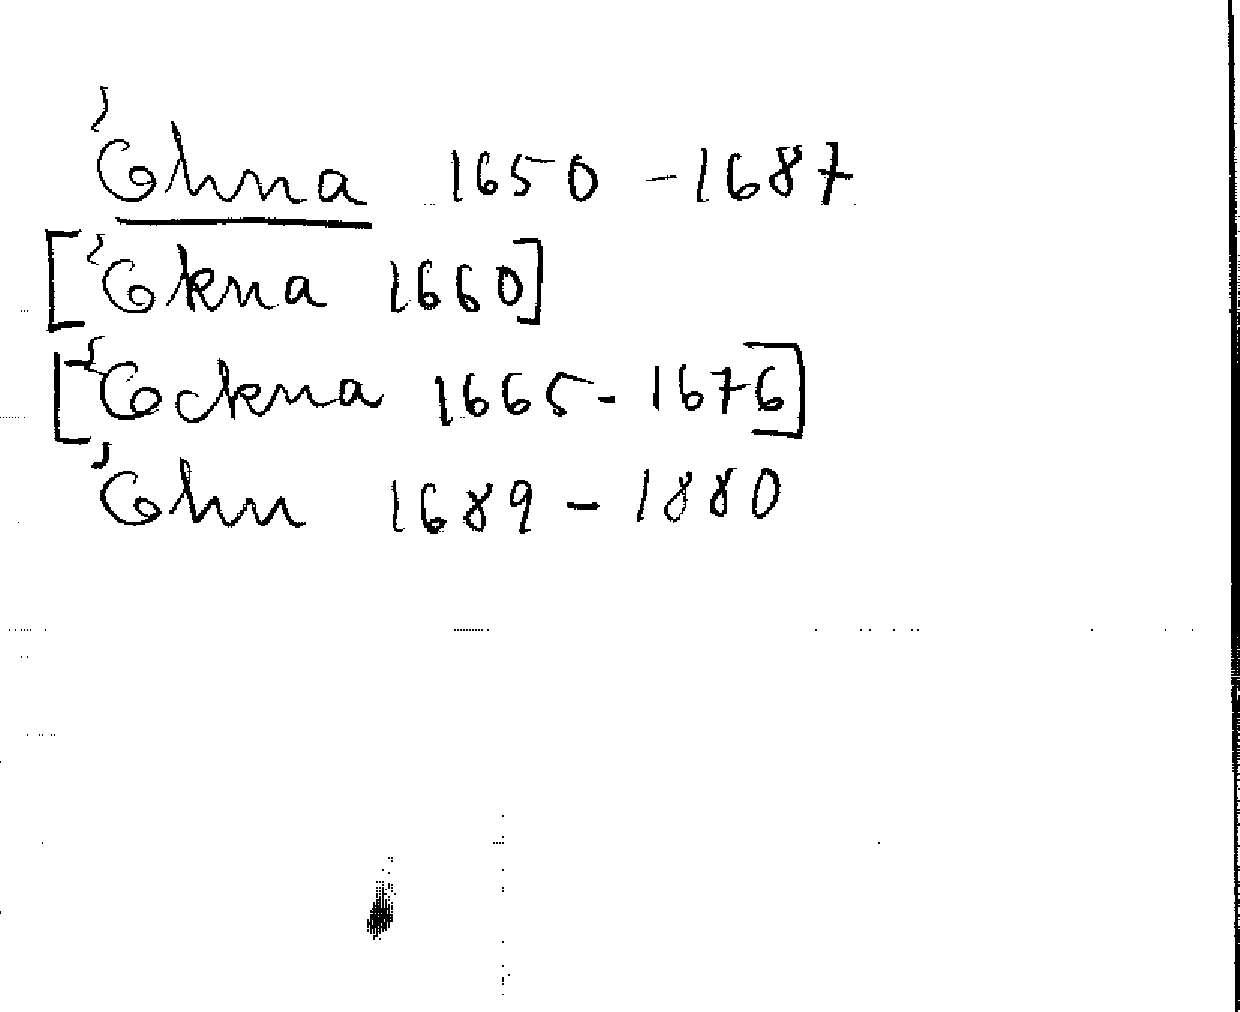 Ehna 1650 - 1687
[Ekna 1660]
[Eckna 1665 - 1676]
Ehn 1689 - 1880